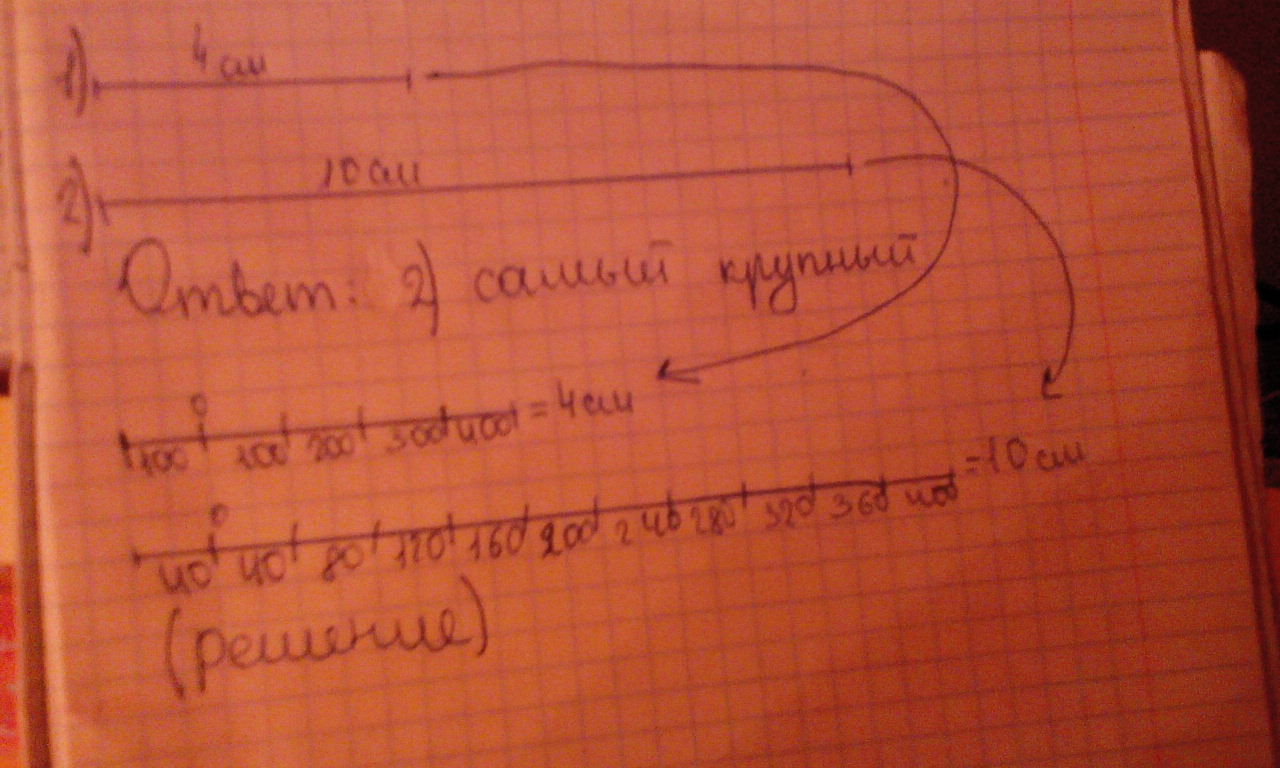 1) 4 см
2) 10 см
Ответ: 2) самый крупный
0
100 100 200 300 400 = 4 см
0
40 40 80 120 160 200 240 280 320 360 400 = 10 см
(решение)